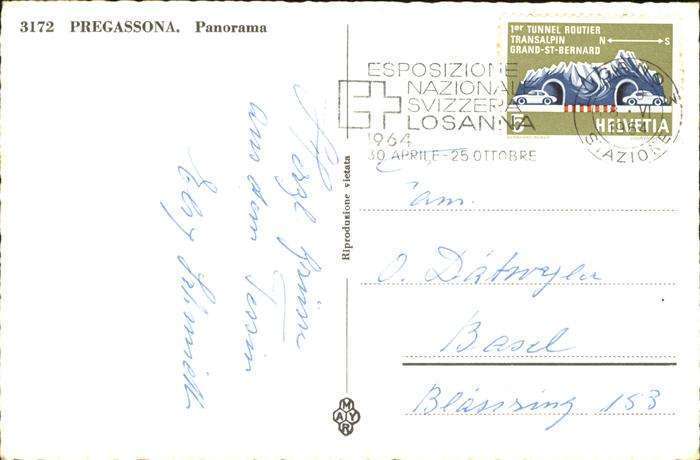 3172 PREGASSONA. Panorama
1er TUNNEL ROUTIER
TRANSALPIN N S
GRAND-ST-BERNARD
5 HELVETIA
ESPOSIZIONE
NAZIONALE
SVIZZERA
LOSANNA
1964
30 APRILE - 25 OTTOBRE
STAZIONE
Riproduzione vietata
Herzl. Grüsse
aus dem Tessin
Fam.
O. Dätwyler
Basel
Bläsiring 153
MAYR